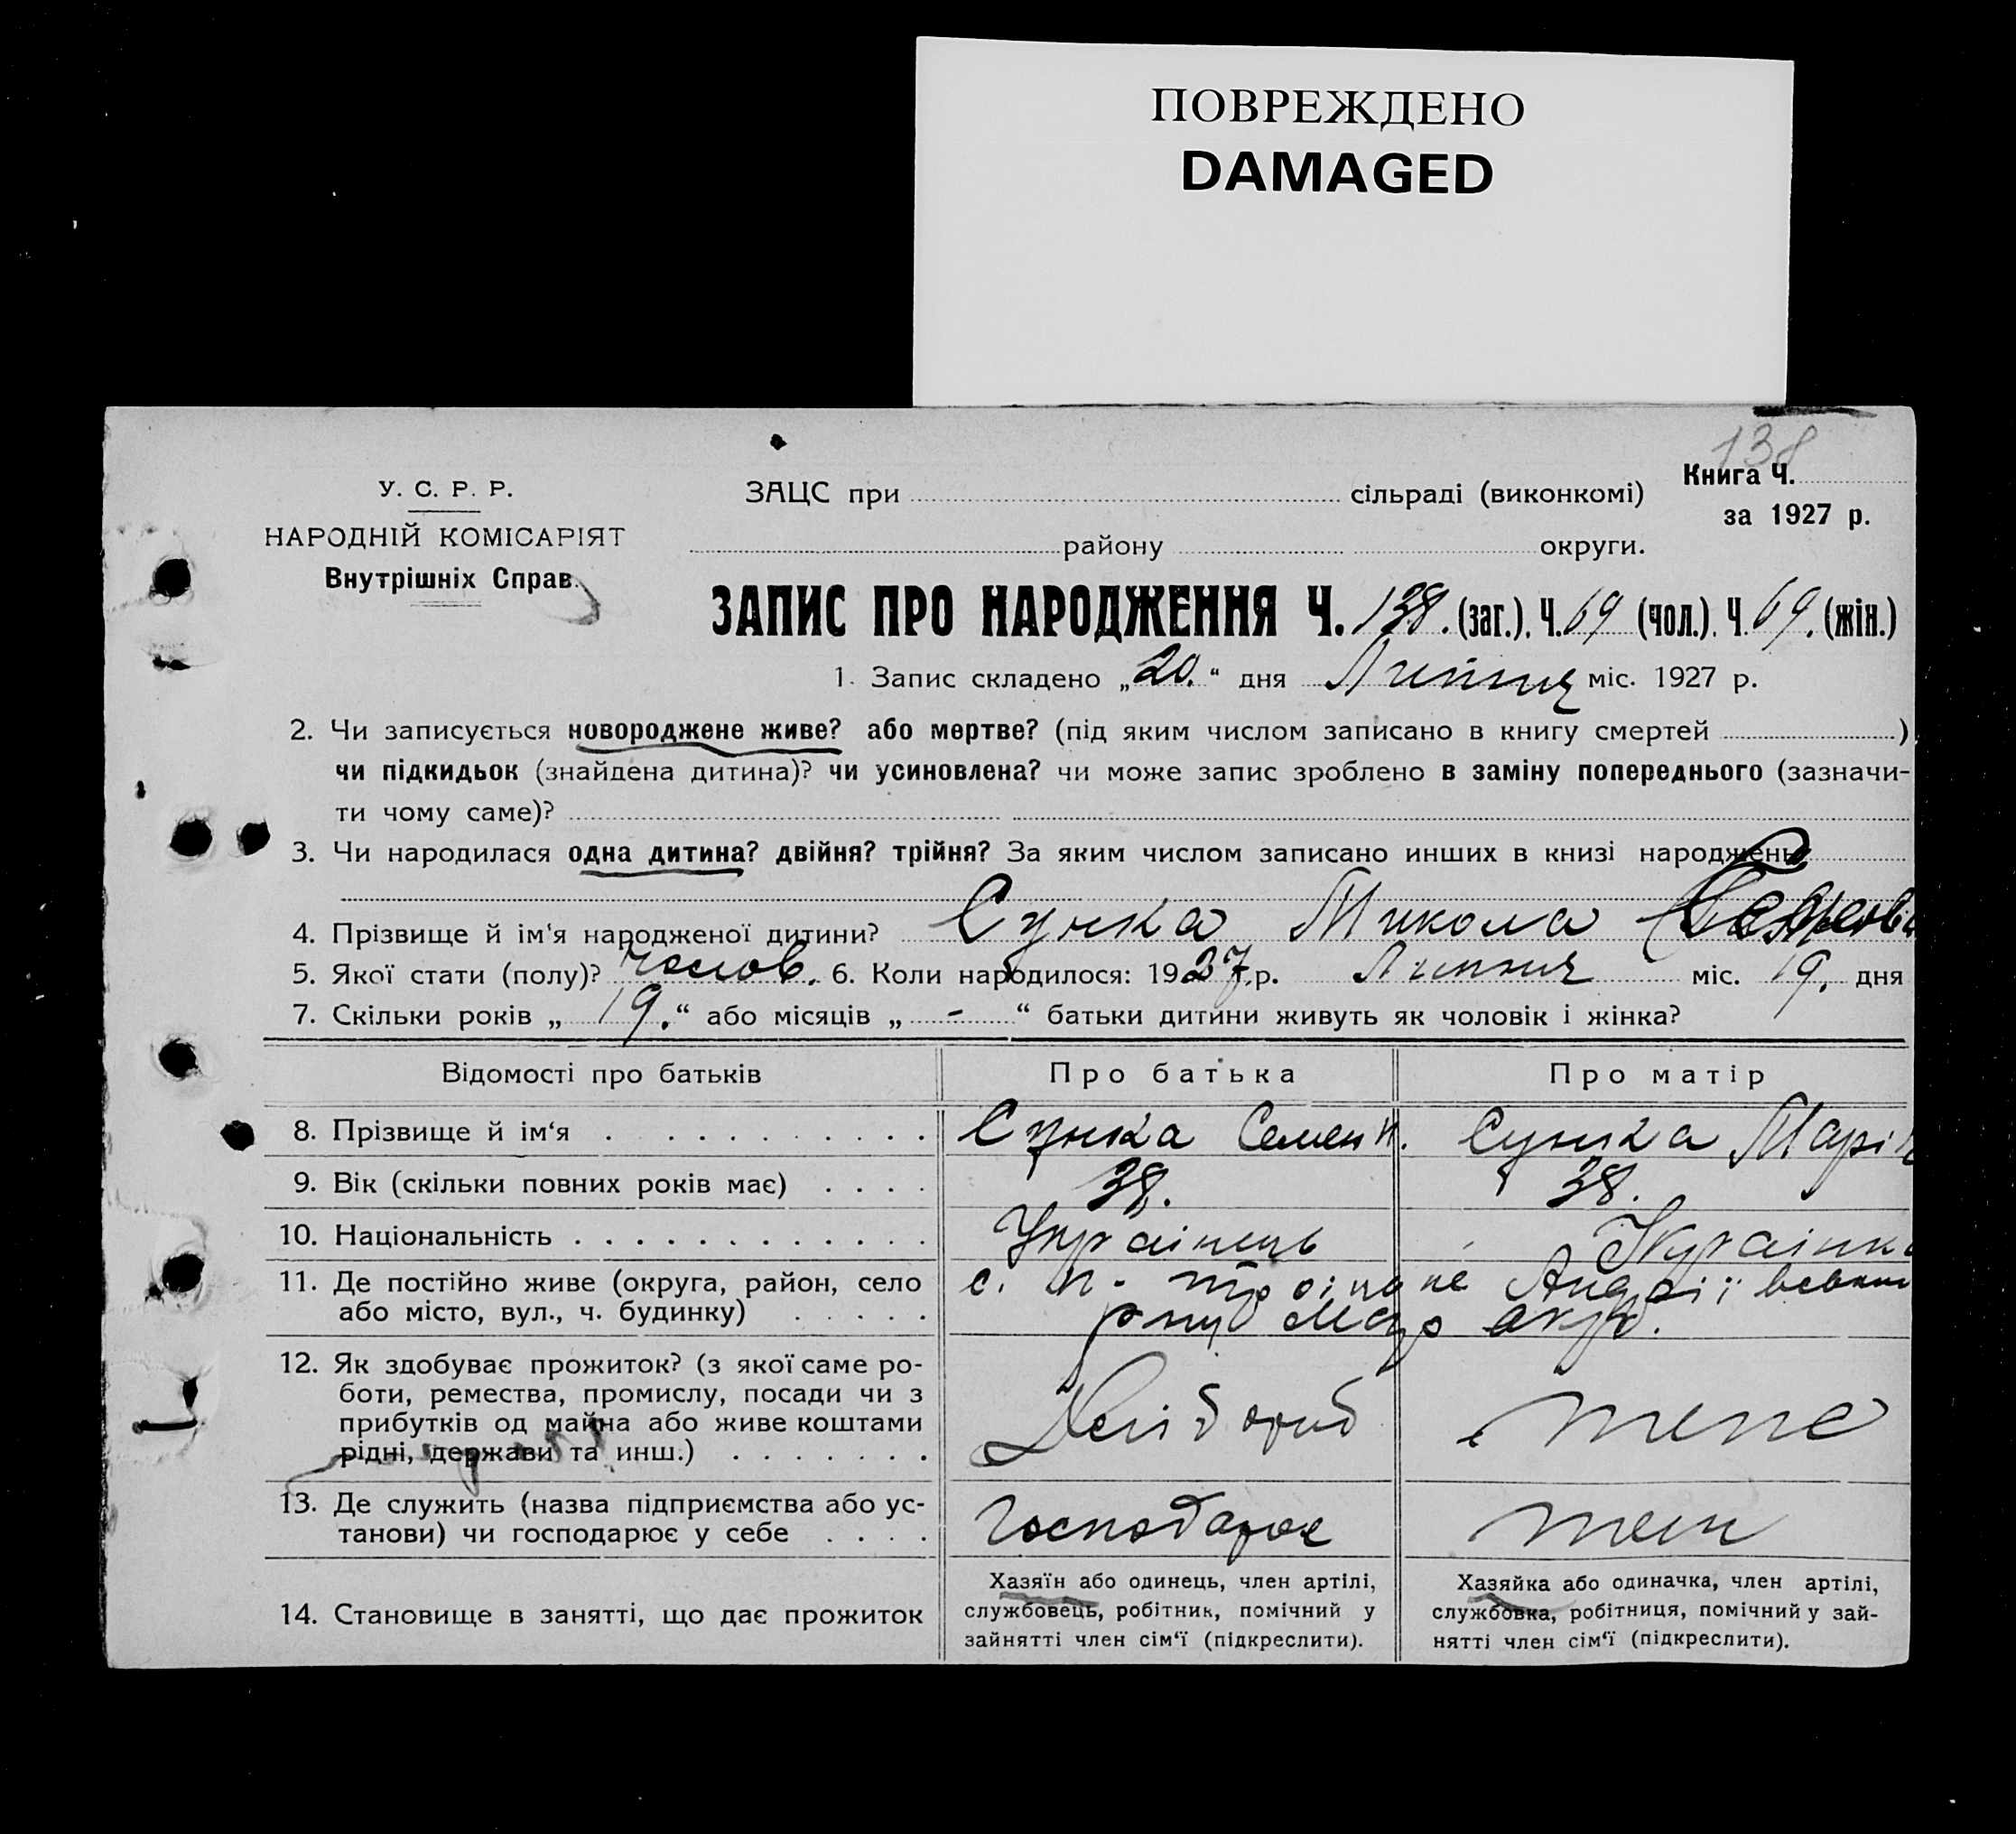 ПОВРЕЖДЕНО
DAMAGED
138
У. С. Р. Р.
НАРОДНІЙ КОМІСАРІЯТ
Внутрішніх Справ.
ЗАЦС при сільраді (виконкомі)
Книга Ч.
за 1927 р.
району округи.
ЗАПИС ПРО НАРОДЖЕННЯ Ч. 138. (заг.). Ч. 69 (чол.). Ч. 69. (жін.)
1. Запис складено „20.“ дня Липня міс. 1927 р.
2. Чи записується новороджене живе? або мертве? (під яким числом записано в книгу смертей )
чи підкидьок (знайдена дитина)? чи усиновлена? чи може запис зроблено в заміну попереднього (зазначи-
ти чому саме)?
3. Чи народилася одна дитина? двійня? трійня? За яким числом записано инших в книзі народжень
4. Прізвище й ім'я народженої дитини? Сунка Микола
5. Якої стати (полу)? чолов. 6. Коли народилося: 1927.р. Липня міс. 19. дня
7. Скільки років „19.“ або місяців „-“ батьки дитини живуть як чоловік і жінка?
Відомості про батьків Про батька Про матір
8. Прізвище й ім‘я Сунка Семен И. Сунка Марія
9. Вік (скільки повних років має) 38. 38.
10. Національність Українець Українка
11. Де постійно живе (округа, район, село с. Н. Троіцьке Андріївськ
або місто, вул., ч. будинку) окр.
12. Як здобуває прожиток? (з якої саме ро-
боти, ремества, промислу, посади чи з
прибутків од майна або живе коштами
рідні, держави та инш.) Хлібороб теж
13. Де служить (назва підприємства або ус-
танови) чи господарює у себе Господарює теж
14. Становище в занятті, що дає прожиток
Хазяїн або одинець, член артілі,
службовець, робітник, помічний у
зайнятті член сім‘ї (підкреслити).
Хазяйка або одиначка, член артілі,
службовка, робітниця, помічний у зай-
нятті член сім‘ї (підкреслити).